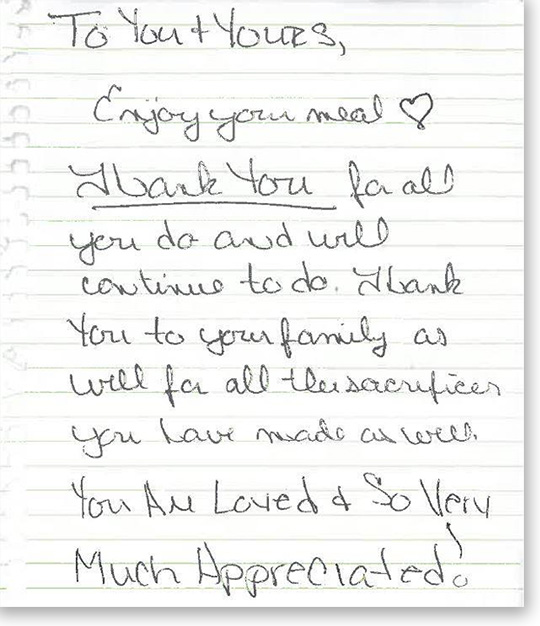 To You + Yours,
Enjoy your meal ♡
Thank You for all
you do and will
continue to do. Thank
You to your family as
well for all the sacrifices
you have made as well.
You Are Loved & So Very
Much Appreciated!